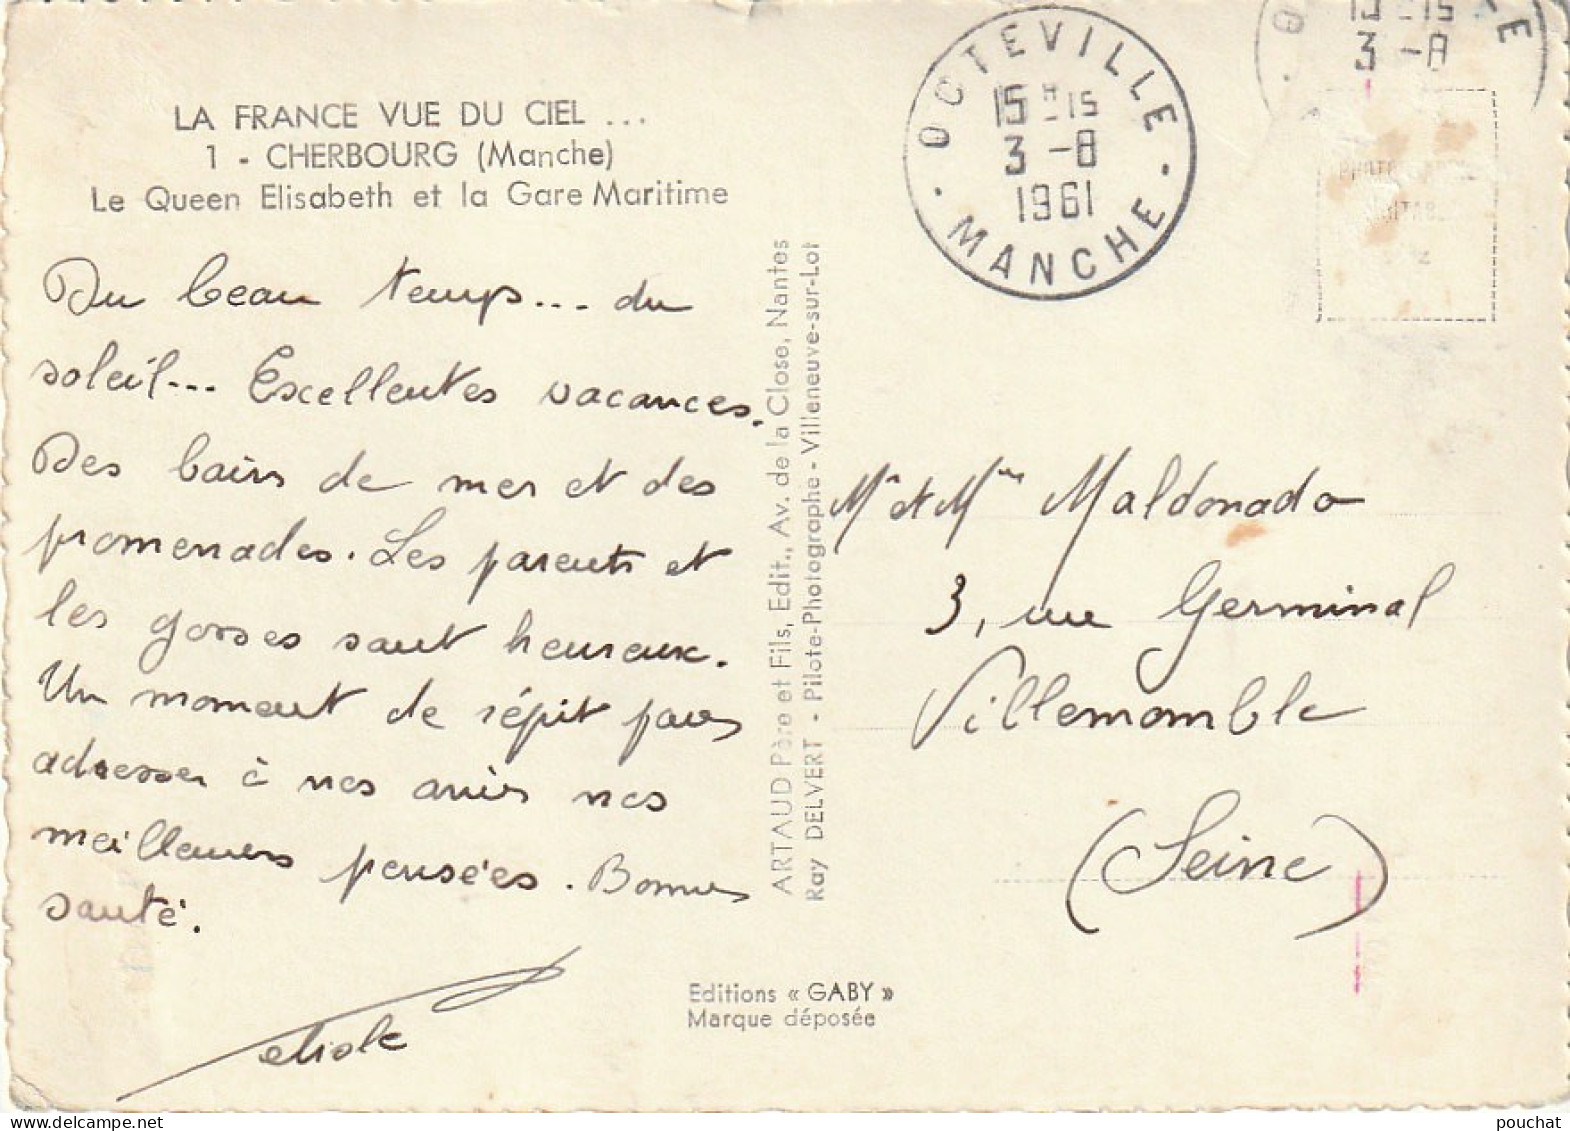 LA FRANCE VUE DU CIEL ...
1 - CHERBOURG (Manche)
Le Queen Elisabeth et la Gare Maritime
Du beau temps... du
soleil... Excellentes vacances.
Des bains de mer et des
promenades. Les parents et
les gosses sont heureux.
Un moment de répit pour
adresser à nos amis nos
meilleures pensées. Bonne
santé.
ARTAUD Père et Fils, Edit., Av. de la Close, Nantes
Ray DELVERT - Pilote-Photographe - Villeneuve-sur-Lot
Editions « GABY »
Marque déposée
OCTEVILLE
15 H 15
3 - 8
1961
MANCHE
15 15
3 - 8
Mr et Mme Maldonado
3, rue Germinal
Villemomble
(Seine)
pouchat